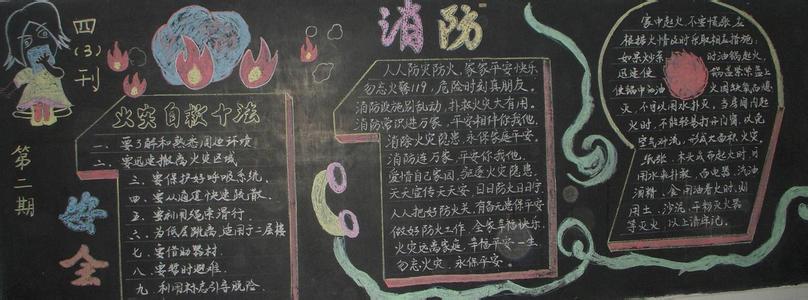 四(3)刊
第二期
安全
消防
火灾自救十法
一、要了解和熟悉周边环境
二、要迅速撤离火灾区域
三、要保护好呼吸系统，
四、要从通道快速疏散，
五、要利用绳索滑行，
六、为低层跳离，适用于二层楼
七、要借助器材，
八、要暂时避难，
九、利用标志引导脱险，
人人防灾防火，家家平安快乐
勿忘火警119，危险时刻真朋友，
消防设施别乱动，扑救火灾大有用，
消防常识进万家，平安相伴你我他，
消除火灾隐患，永保家庭平安，
消防连万家，平安你我他，
爱惜自己家园，驱逐火灾隐患，
天天宣传天天安，日日防火日日宁，
人人把好防火关，有备无患保平安
做好防火工作，全家幸福快乐，
火灾远离家庭，幸福平安一生，
勿忘火灾，永保平安。
家中起火，不要慌张，应
根据火情及时采取相应措施：
如果炒菜时油锅起火，
迅速使锅盖紧紧盖上
使锅中油火因缺氧而熄
灭，不可以用水扑灭，当房间内起
火时，不能轻易打开门窗，以免
空气对流，形成大面积火灾，
纸张、木头或布起火时，可
用水来扑救，而电器、汽油
酒精、食用油着火时，则
用土、沙泥、干粉灭火器
等灭火，以上请牢记。